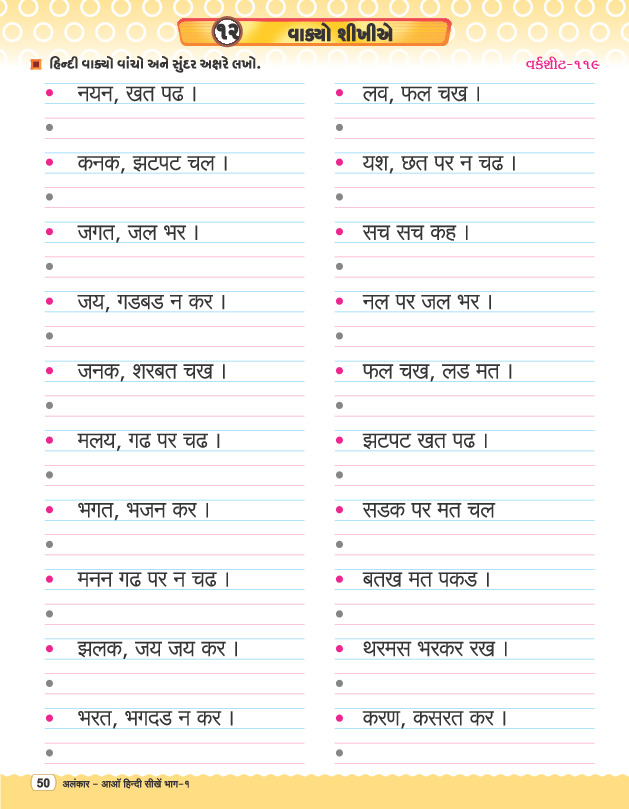 ૧૨ વાક્યો શીખીએ
હિન્દી વાક્યો વાંચો અને સુંદર અક્ષરે લખો.
વર્કશીટ-૧૧૯
नयन, खत पढ ।
कनक, झटपट चल ।
जगत, जल भर ।
जय, गडबड न कर ।
जनक, शरबत चख ।
मलय, गढ पर चढ ।
भगत, भजन कर ।
मनन गढ पर न चढ ।
झलक, जय जय कर ।
भरत, भगदड न कर ।
लव, फल चख ।
यश, छत पर न चढ ।
सच सच कह ।
नल पर जल भर ।
फल चख, लड मत ।
झटपट खत पढ ।
सडक पर मत चल
बतख मत पकड ।
थरमस भरकर रख ।
करण, कसरत कर ।
50 अलंकार - आऑ हिन्दी सीखें भाग-१